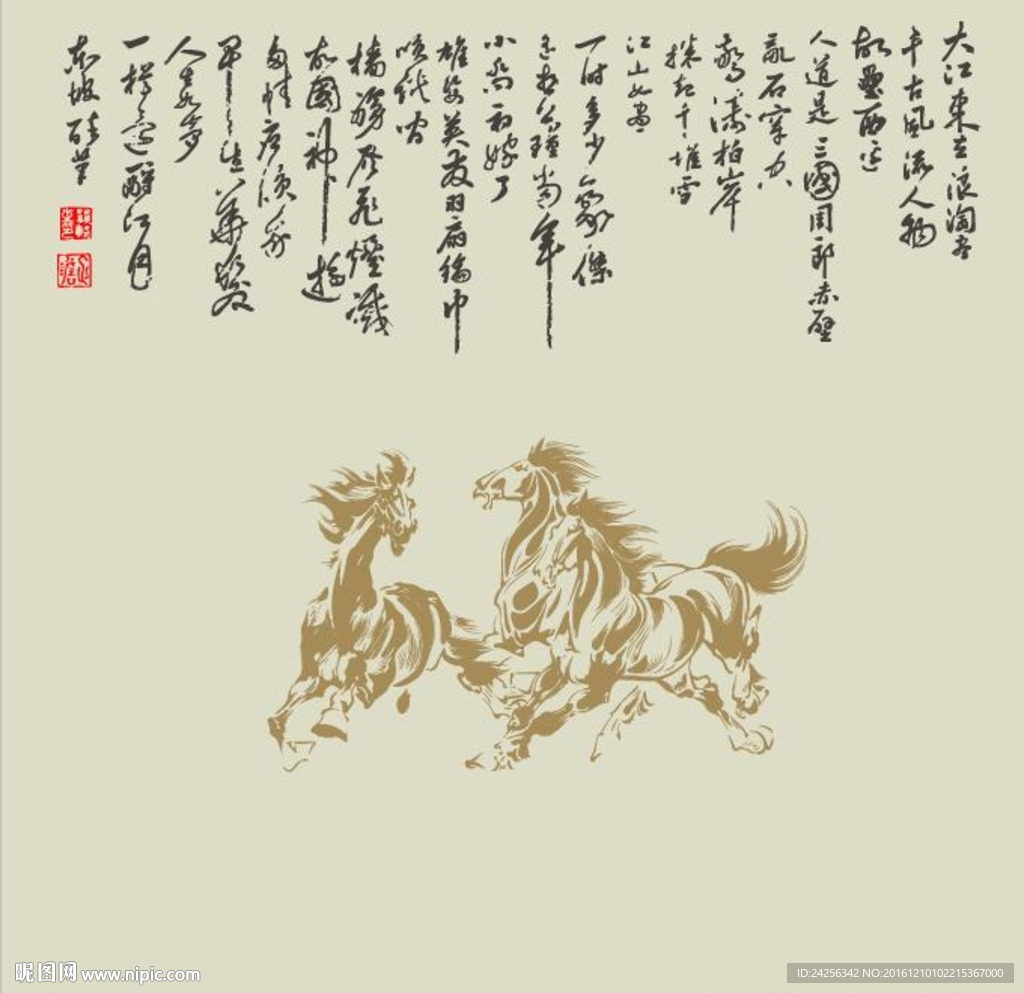 大江東去浪淘盡
千古風流人物
故壘西邊
人道是三國周郎赤壁
亂石穿空
驚濤拍岸
捲起千堆雪
江山如畫
一時多少豪傑
遙想公瑾當年
小喬初嫁了
雄姿英發羽扇綸巾
咲談間
檣艣灰飛煙滅
故國神遊
多情應
早生華髮
人生如夢
一樽還酹江月
東坡醉筆
昵图网 www.nipic.com
ID:24256342 NO:20161210102215367000